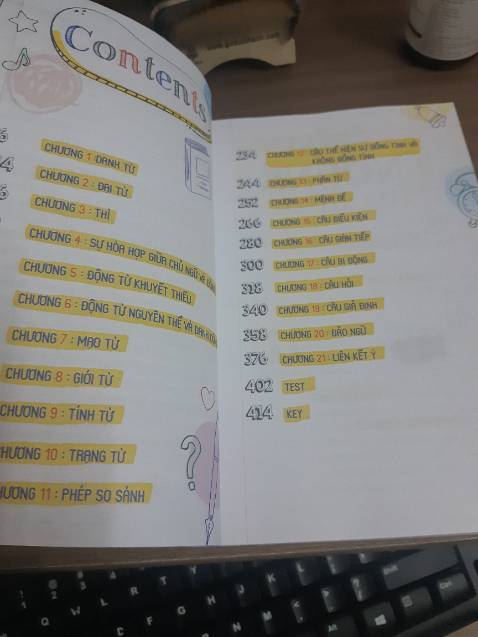 Contents
CHƯƠNG 1 DANH TỪ
CHƯƠNG 2 : ĐẠI TỪ
CHƯƠNG 3 : THÌ
CHƯƠNG 4 : SỰ HÒA HỢP GIỮA CHỦ NGỮ VÀ
CHƯƠNG 5 : ĐỘNG TỪ KHUYẾT THIẾU
CHƯƠNG 6 : ĐỘNG TỪ NGUYÊN THỂ VÀ DANH
CHƯƠNG 7 : MẠO TỪ
CHƯƠNG 8 : GIỚI TỪ
CHƯƠNG 9 : TÍNH TỪ
HƯƠNG 10 : TRẠNG TỪ
HƯƠNG 11 : PHÉP SO SÁNH
234 CHƯƠNG 12 : CÂU THỂ HIỆN SỰ ĐỒNG TÌNH VÀ
KHÔNG ĐỒNG TÌNH
244 CHƯƠNG 13 : PHÂN TỪ
252 CHƯƠNG 14 : MỆNH ĐỀ
266 CHƯƠNG 15 : CÂU ĐIỀU KIỆN
280 CHƯƠNG 16 : CÂU GIÁN TIẾP
300 CHƯƠNG 17 : CÂU BỊ ĐỘNG
318 CHƯƠNG 18 : CÂU HỎI
340 CHƯƠNG 19 : CÂU GIẢ ĐỊNH
358 CHƯƠNG 20 : ĐẢO NGỮ
376 CHƯƠNG 21 : LIÊN KẾT Ý
402 TEST
414 KEY